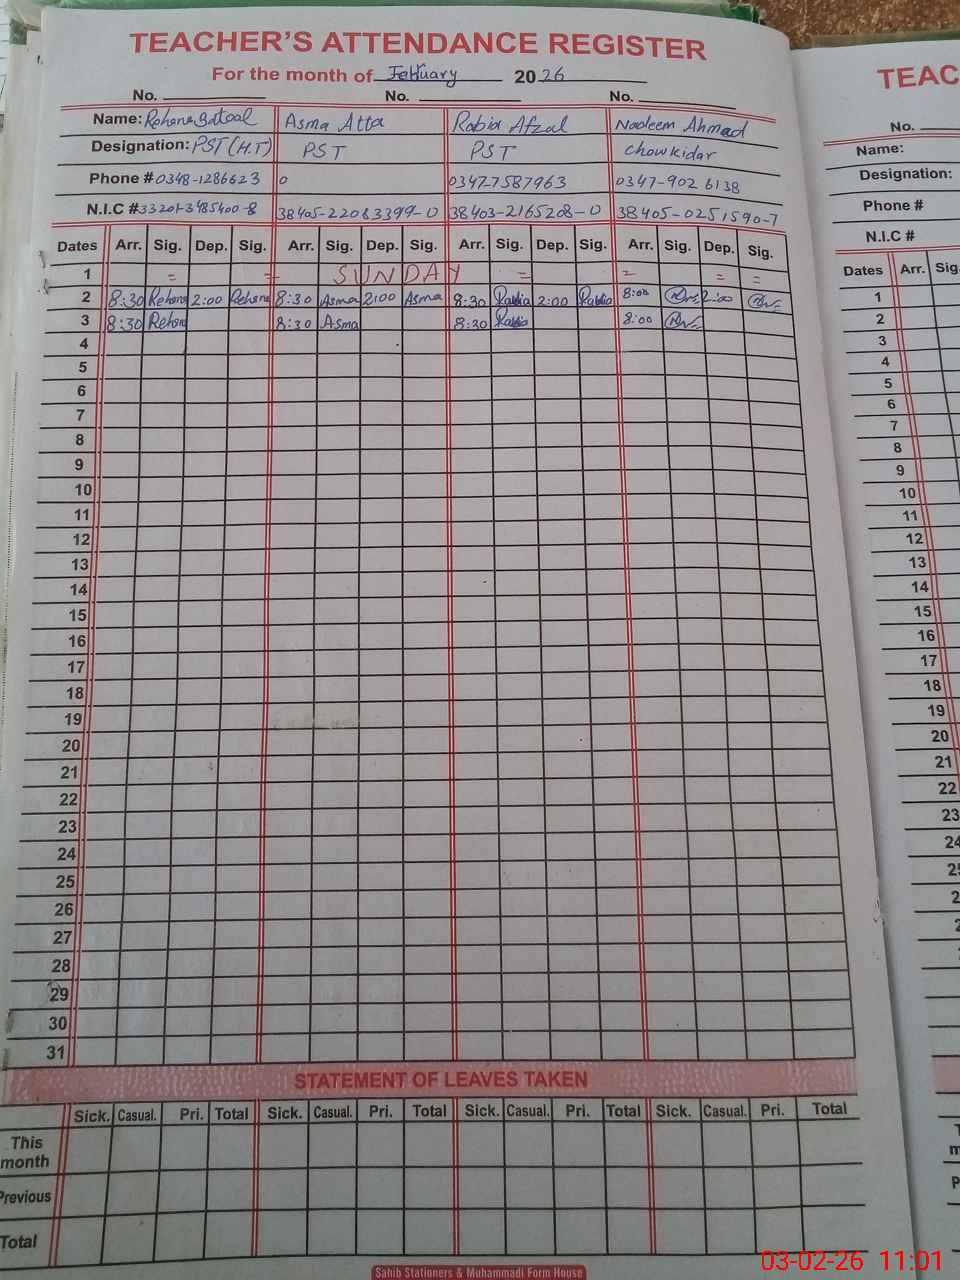 TEACHER'S ATTENDANCE REGISTER
For the month of February 2026
No. No. No.
Name: Rehana Batool Asma Atta Rabia Afzal Nadeem Ahmad
Designation: PST (H.T) PST PST Chowkidar
Phone # 0348-1286623 0 0347-7587963 0347-902 6138
N.I.C # 33201-3485400-8 38405-22083399-0 38403-2165208-0 38405-0251590-7
Dates Arr. Sig. Dep. Sig. Arr. Sig. Dep. Sig. Arr. Sig. Dep. Sig. Arr. Sig. Dep. Sig.
1 = = SUNDAY = = = =
2 8:30 Rehana 2:00 Rehana 8:30 Asma 2:00 Asma 8:30 Rabia 2:00 Rabia 8:00 2:00
3 8:30 Rehana 8:30 Asma 8:30 Rabia 8:00
4
5
6
7
8
9
10
11
12
13
14
15
16
17
18
19
20
21
22
23
24
25
26
27
28
29
30
31
STATEMENT OF LEAVES TAKEN
Sick. Casual. Pri. Total Sick. Casual. Pri. Total Sick. Casual. Pri. Total Sick. Casual. Pri. Total
This month
Previous
Total
Sahib Stationers & Muhammadi Form House
TEAC
No.
Name:
Designation:
Phone #
N.I.C #
Dates Arr. Sig.
1
2
3
4
5
6
7
8
9
10
11
12
13
14
15
16
17
18
19
20
21
22
23
24
03-02-26 11:01